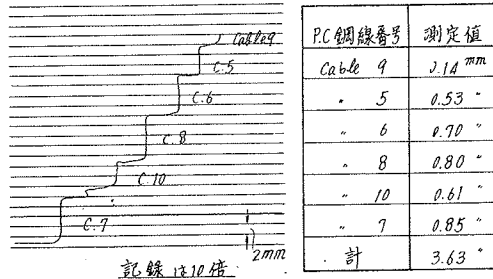 Cable9
C.5
C.6
C.8
C.10
C.7
2mm
記録は10倍
P.C鋼線番号 測定値
Cable 9 0.14 mm
〃 5 0.53 〃
〃 6 0.70 〃
〃 8 0.80 〃
〃 10 0.61 〃
〃 7 0.85 〃
計 3.63 〃